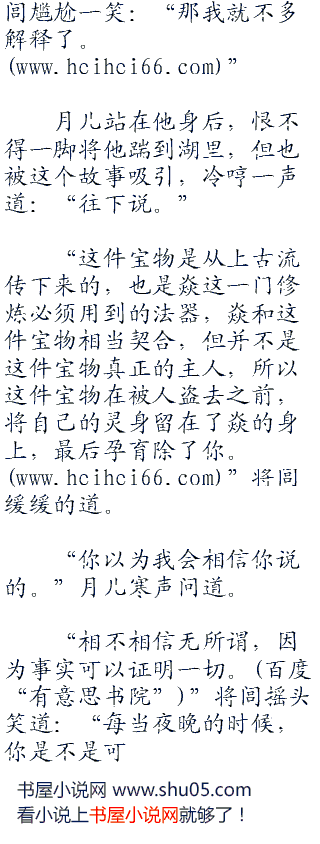 闾尴尬一笑：“那我就不多
解释了。
(www.hcihci66.com)”
月儿站在他身后，恨不
得一脚将他踹到湖里，但也
被这个故事吸引，冷哼一声
道：“往下说。”
“这件宝物是从上古流
传下来的，也是焱这一门修
炼必须用到的法器，焱和这
件宝物相当契合，但并不是
这件宝物真正的主人，所以
这件宝物在被人盗去之前，
将自己的灵身留在了焱的身
上，最后孕育除了你。
(www.hcihci66.com)”将闾
缓缓的道。
“你以为我会相信你说
的。”月儿寒声问道。
“相不相信无所谓，因
为事实可以证明一切。(百度
“有意思书院”)”将闾摇头
笑道：“每当夜晚的时候，
你是不是可
书屋小说网 www.shu05.com
看小说上书屋小说网就够了！